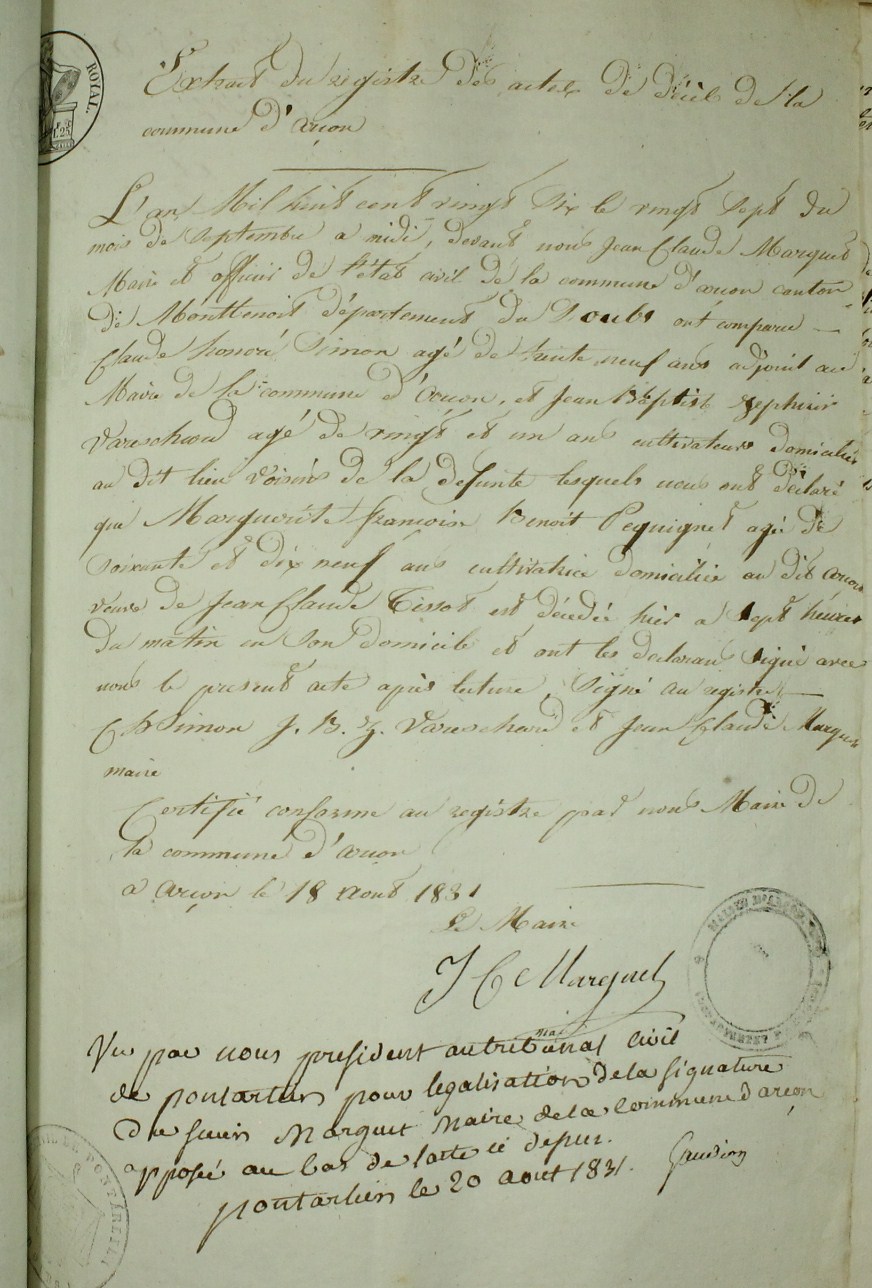 ROYAL.
Extrait du registre des actes de décès de la
commune d'arçon
L'an Mil huit cent vingt six le vingt sept du
mois de septembre a midi, devant nous Jean Claude Marguet
Maire et officier de l'état civil de la commune d'arcon canton
de Montbenoit département du Doubs ont comparu
Claude honoré Simon agé de trente neuf ans adjoint au
Maire de la commune d'Arcon, et Jean Baptiste Zephirir
Vareschard agé de vingt et un ans cultivateurs domiciliés
au dit lieu voisins de la defunte lesquels nous ont déclaré
que Marguerite francoise Benoit Pequignet agée de
soixante et dix neuf ans cultivatrice domiciliée au dit arcon
veuve de Jean Claude Tissot est décédée hier a sept heures
du matin en son domicile et ont les declarans signé avec
nous le present acte après lecture, Signé au registre
C h Simon J. B. Z. Vareschard et Jean Claude Marguet
maire
Certifié conforme au registre par nous Maire de
la commune d'arcon
a arçon le 18 aout 1831
Le Maire
J C Marguet
Vu par nous president au tribunal Civil
de pontarlier pour legalisation de la signature
Du sieur Marguet Maire de la Commune d'arçon
apposée au bas de l'acte ci depur.
pontarlier le 20 aout 1831.